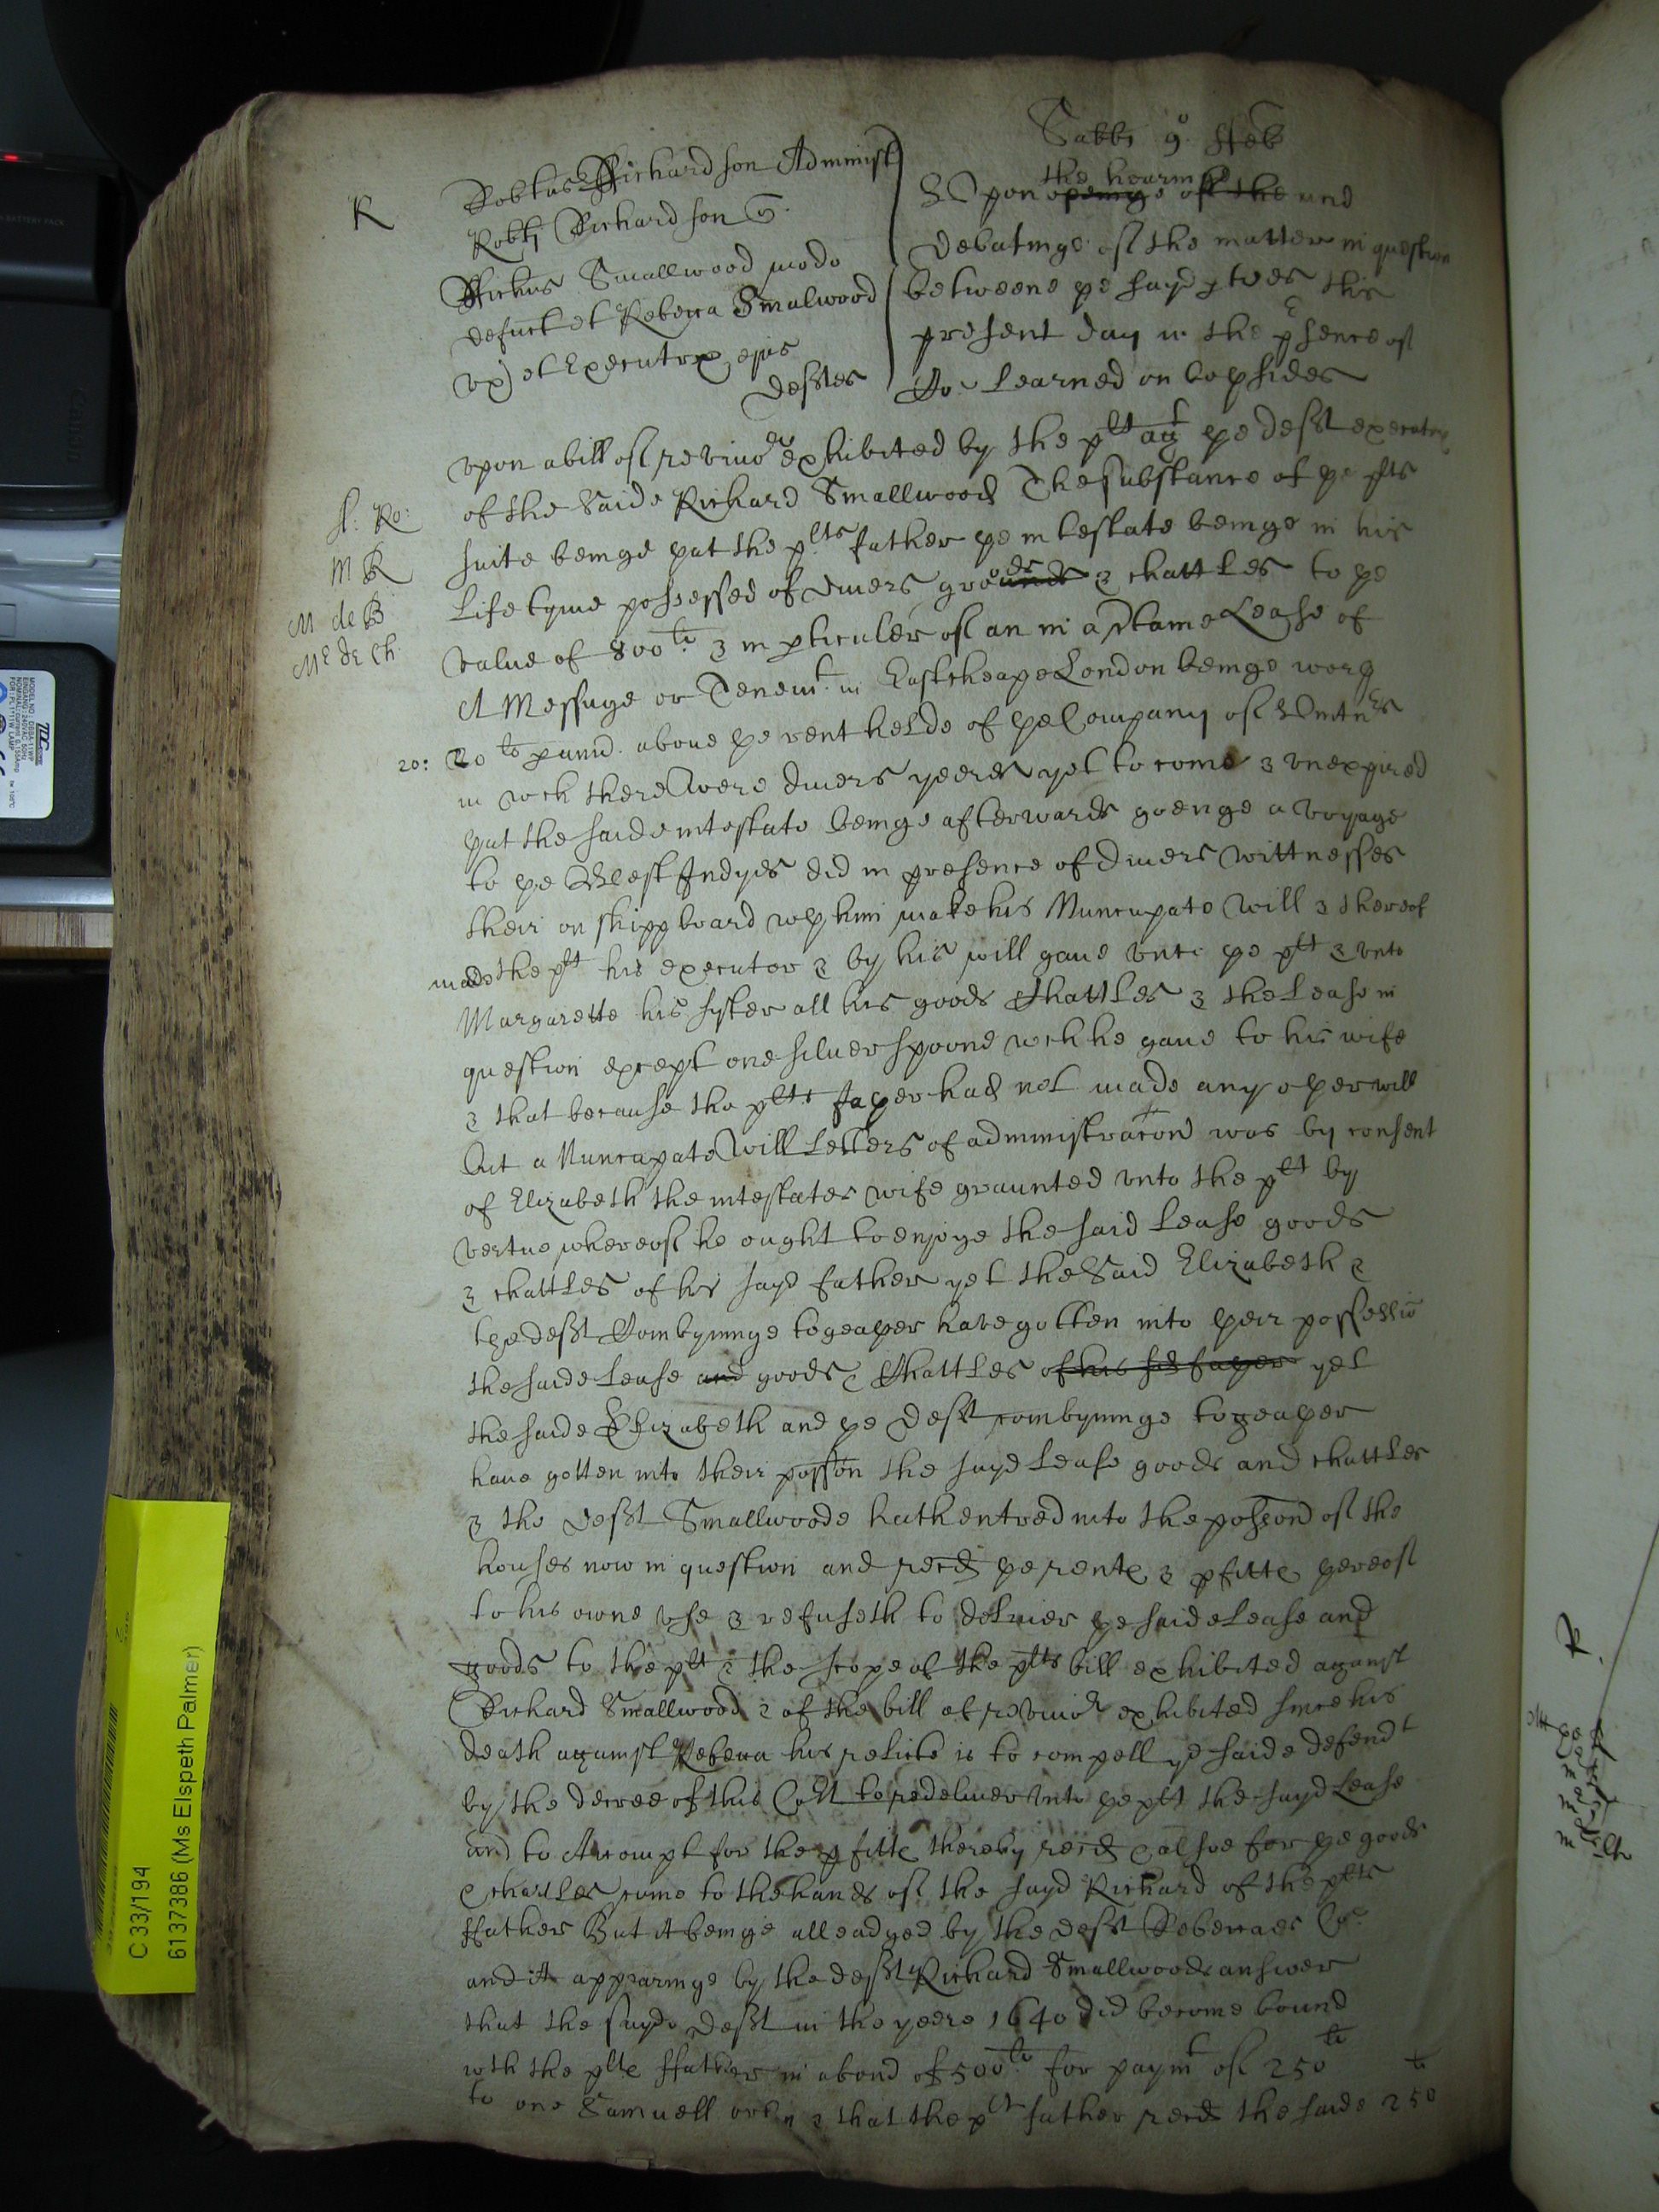 Sabbi 9o ffeb
R
Robtus Richardson Administ
Robti Richardson
Ricus Smallwood modo
defunct et Rebecca Smalwood
vx) et Executrix ejus
deftes
the hearinge
Vpon openinge off the and
debatinge off the matter in question
betweene ye sayd ptyes this
present day in the psence off
Co Learned on boyh sides
vpon a bill off reviuor exhibited by the plt agt ye deft executrix
of the Saide Richard Smallwood The substance of ye plts
suite beinge yat the plts father ye intestate beinge in his
Life tyme possessed of diuers groounds ods & chattLes to ye
value of 800li & in pticuler off an in a Lease of
A Messuage or Tenemt in Eastcheape London beinge wory
20li p annu aboue ye rent helde of ye Company off Vintnrs
in wch there were diuers yeeres yet to come & vnexpired
yat the saide intestate beinge afterwards goenge a voyage
to ye West Indyes did in presence of diuers wittnesses
their on shippboard wyh him make his Nuncupate will & thereof
made the plt his executor & by his will gaue vnto ye plt & vnto
Margarette his syster all his goods ChattLes & the Lease in
question except one siluer spoone wch he gaue to his wife
& that because the plts fayer had not made any oyer will
but a Nuncupate Will Letters of administracon was by consent
of Elizabeth the intestates wife graunted vnto the plt by
vertue whereoff he ought to enjoye the said Lease goods
& chattLes of his sayd father yet the Said Elizabeth &
tye deft Combyninge togeayer haue gotten into yeir possessio
the saide Lease and goods & ChattLes of his sd fayer yet
the saide Elizabeth and ye Deft combyninge togeayer
haue gotten into their posson the sayd Lease goods and chattLes
& the deft Smallwoode hath entred into the posson off the
houses now in question and recd ye rente & pfitte yereoff
to his owne vse & refuseth to deliuer ye saide Lease and
goods to the plt & the scope of the plts bill exhibited against
Richard Smallwood & of the bill of reviuor exhibited since his
death against Rebecca his relicte is to compell ye saide defendt
by the decree of this Cort to redeliuer vnto ye plt the sayd Lease
and to Accompt for the pfitte thereby recd & alsoe for ye goods
& chattLes come to the hands off the sayd Richard of the plts
ffather But it beinge alleadged by the deft Rebeccaes Co
and it appearinge by the deft Richard Smallwoods answer
that the sayde deft in the yeere 1640 did become bound
wth the plte ffather in a bond of 500li for paymt off 250li
to one Samuell & that the plt father recd the saide 250li
M R
M de B
20:
C 33/194
6137386 (Ms Elspeth Palmer)